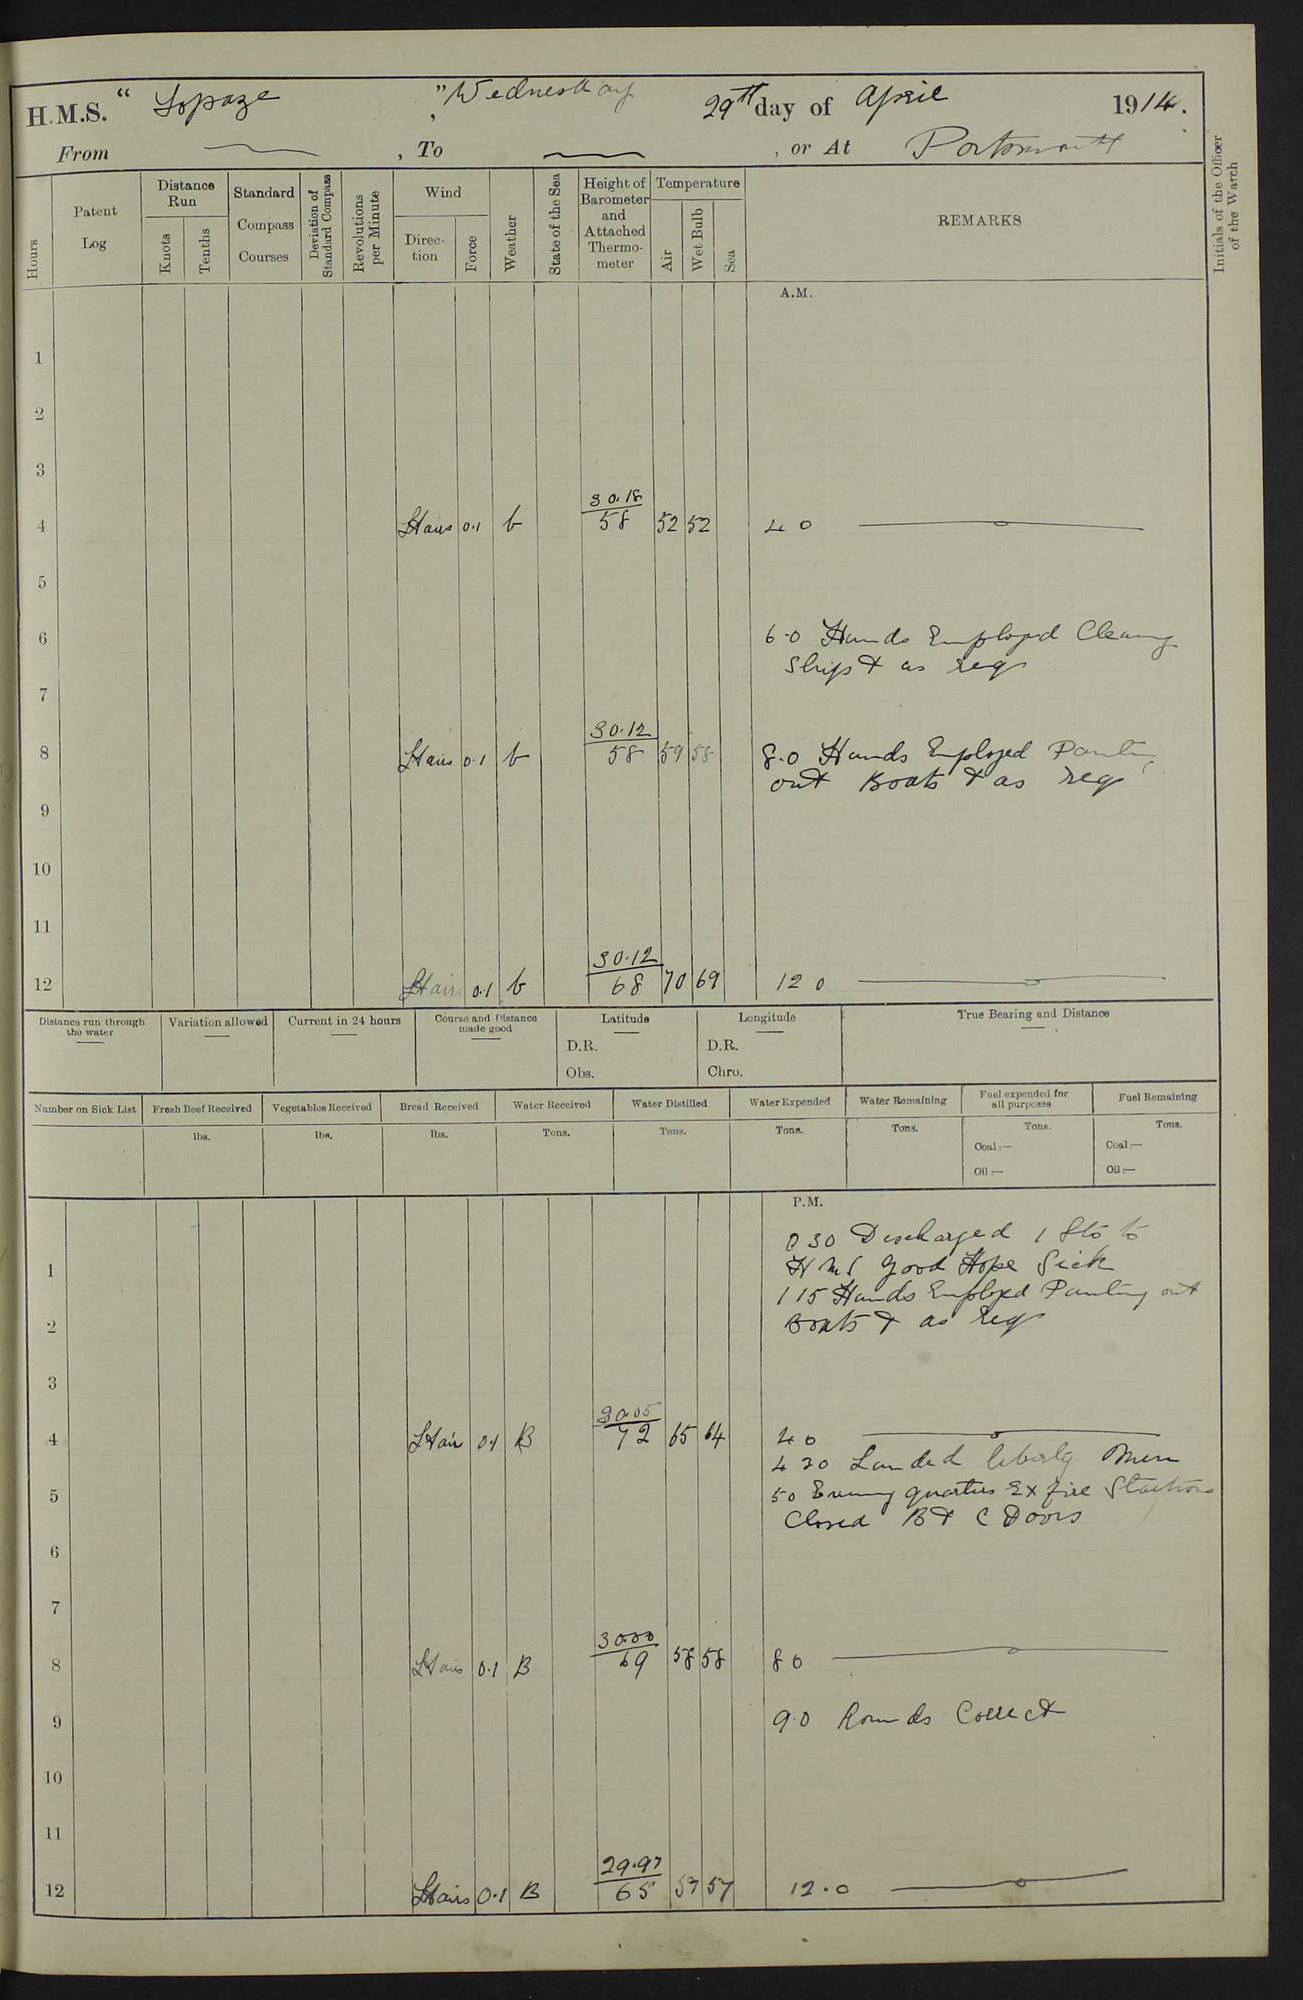 H.M.S. “ Topaze ” , Wednesday 29th day of April 1914.
From , To , or At Portsmouth
Hours
Patent Log
Distance Run
Knots
Tenths
Standard Compass Courses
Deviation of Standard Compass
Revolutions per Minute
Wind
Direction
Force
Weather
State of the Sea
Height of Barometer and Attached Thermometer
Temperature
Air
Wet Bulb
Sea
REMARKS
Initials of the Officer of the Watch
A.M.
1
2
3
30.18
4 Lt airs 0.1 b 58 52 52 4 0
5
6 6.0 Hands Employed Cleaning
Ship & as req
7
30.12
8 Lt airs 0.1 b 58 59 58 8.0 Hands Employed
out Boats & as req
9
10
11
30.12
12 Lt airs 0.1 b 68 70 69 12 0
Distance run through the water
Variation allowed
Current in 24 hours
Course and Distance made good
Latitude
D.R.
Obs.
Longitude
D.R.
Chro.
True Bearing and Distance
Number on Sick List
Fresh Beef Received
Vegetables Received
Bread Received
Water Received
Water Distilled
Water Expended
Water Remaining
Fuel expended for all purposes
Fuel Remaining
lbs. lbs. lbs. Tons. Tons. Tons. Tons. Tons. Tons.
Coal:— Coal:—
Oil:— Oil:—
P.M.
0 30 Discharged 1 Sto to
1 HMS Good Hope Sick
1 15 Hands Employed Painting out
2 Boats & as req
3
30.05
4 Lt air 0.1 B 72 65 64 4 0
4 30 Landed liberty Men
5 5 0 Evening quarters Ex fire Stations
Closed B & C Doors
6
7
30.00
8 Lt airs 0.1 B 69 58 58 8 0
9 9.0 Rounds Correct
10
11
29.97
12 Lt airs 0.1 B 65 57 57 12.0